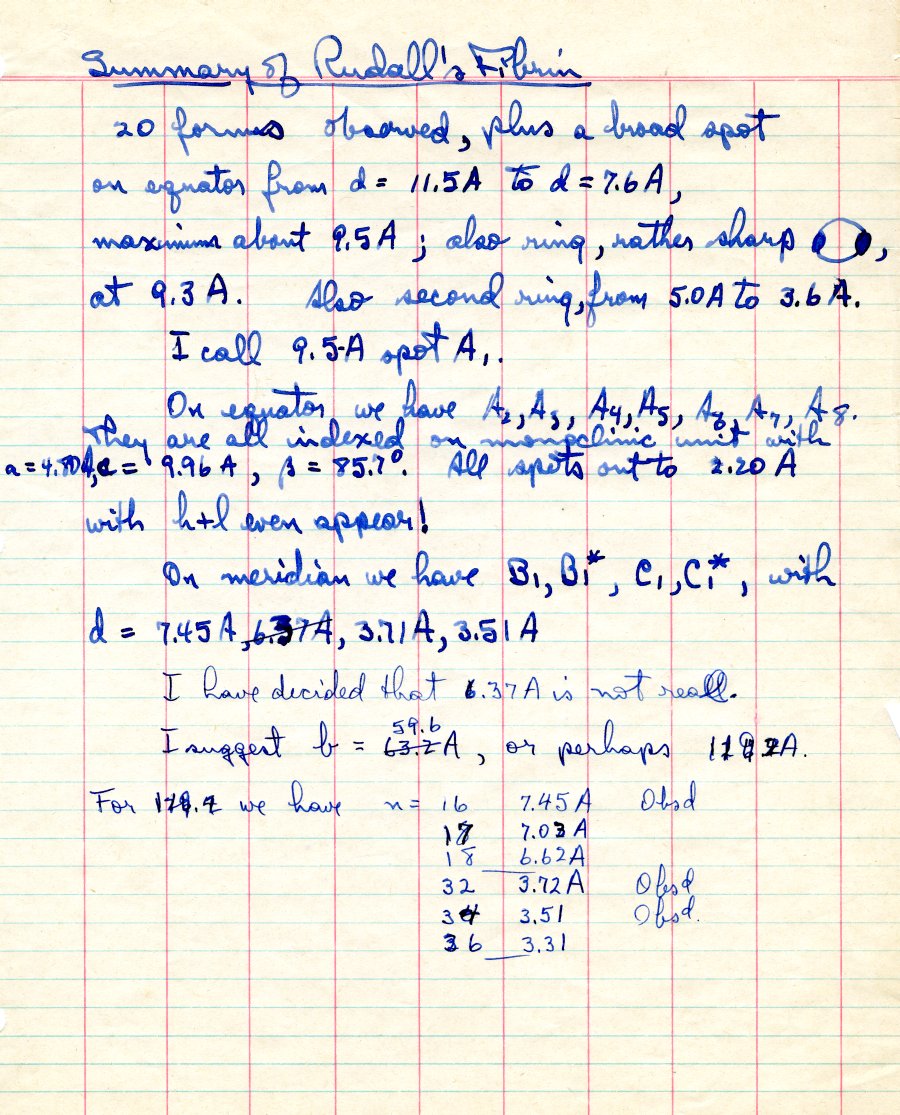 Summary of Rudall's Fibrin
20 forms observed, plus a broad spot
on equator from d = 11.5A to d = 7.6A,
maximum about 9.5A; also ring, rather sharp ,
at 9.3A. Also second ring, from 5.0A to 3.6A.
I call 9.5-A spot A₁.
On equator we have A₂, A₃, A₄, A₅, A₆, A₇, A₈.
They are all indexed on monoclinic unit with
a = 4.80A, c = 9.96A, β = 85.7°. All spots out to 2.20A
with h+l even appear!
On meridian we have B₁, B₁*, C₁, C₁*, with
d = 7.45A, 6.37A, 3.71A, 3.51A
I have decided that 6.37A is not real.
59.6
I suggest b = 63.2A, or perhaps A.
For we have n = 16 7.45A Obsd
17 7.03A
18 6.62A
32 3.72A Obsd
34 3.51 Obsd.
36 3.31